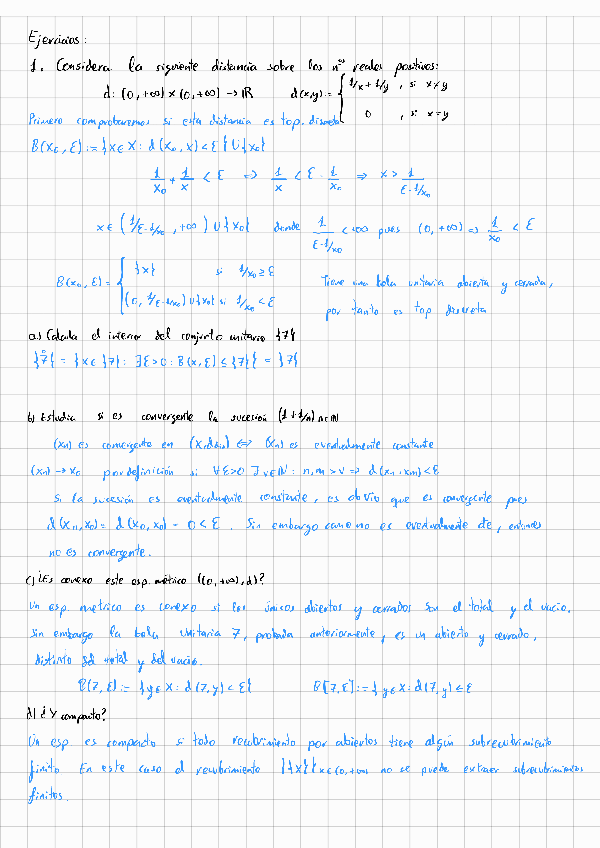 Ejercicios:
1. Considera la siguiente distancia sobre los nºs reales positivos:
d: (0, +∞) x (0, +∞) → IR d(x,y) = { 1/x + 1/y , si x≠y
0 , si x=y
Primero comprobaremos si esta distancia es top. discreta
B(x₀, ε) := {x∈X: d(x₀, x) < ε} ∪ {x₀}
1/x₀ + 1/x < ε => 1/x < ε - 1/x₀ => x > 1/(ε-1/x₀)
x∈ (1/ε-1/x₀, +∞) ∪ {x₀} donde 1/(ε-1/x₀) < +∞ pues (0, +∞) => 1/x₀ < ε
B(x₀, ε) = { {x} si 1/x₀ ≥ ε
(0, 1/ε-1/x₀) ∪ {x₀} si 1/x₀ < ε
Tiene una bola unitaria abierta y cerrada,
por tanto es top discreta
a) Calcula el interior del conjunto unitario {7}
{7}° = {x∈{7}: ∃ε>0: B(x, ε) ≤ {7}} = {7}
b) Estudia si es convergente la sucesión (1+1/n) n∈IN
(xn) es convergente en (X, ddis) <=> (xn) es eventualmente constante
(xn) → x₀ por definición si ∀ε>0 ∃ν∈IN: n,m>ν => d(xn, xm)<ε
Si la sucesión es eventualmente constante, es obvio que es convergente pues
d(xn, x₀) = d(x₀, x₀) = 0 < ε. Sin embargo como no es eventualmente de, entonces
no es convergente.
c) ¿Es conexo este esp. métrico ((0, +∞), d)?
Un esp. métrico es conexo si los únicos abiertos y cerrados son el total y el vacío.
Sin embargo la bola unitaria 7, probada anteriormente, es un abierto y cerrado,
distinto del total y del vacío.
B(7, ε) := {y∈X: d(7, y) < ε} B[7, ε] := {y∈X: d(7, y) ≤ ε
d) ¿Y compacto?
Un esp. es compacto si todo recubrimiento por abiertos tiene algún subrecubrimiento
finito En este caso el recubrimiento {{x}} x∈(0, +∞) no se puede extraer subrecubrimientos
finitos.